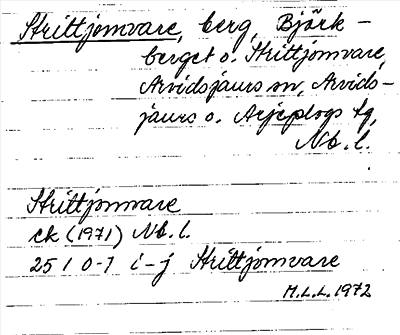 Strittjomvare, berg, Björk-
berget o. Strittjomvare,
Arvidsjaurs sn, Arvids-
jaurs o. Arjeplogs tg,
Nb. l.
Strittjomvare
ek (1971) Nb. l.
25 I 0-1 i-j Strittjomvare
M.L.L. 1972